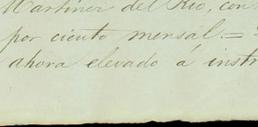 Martinez del Rio, con
por ciento mensal.=
ahora elevado á instr